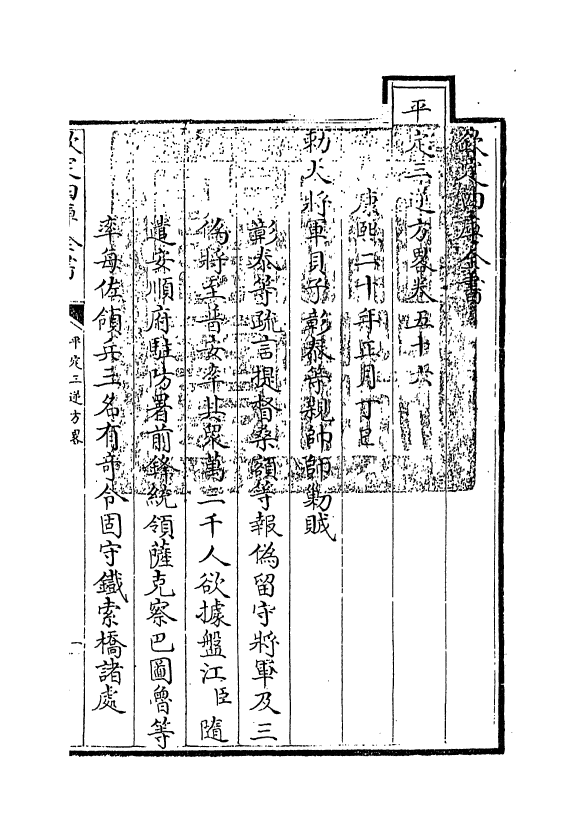 欽定四庫全書
平定三逆方畧卷五十六
康熙二十年正月丁巳
勅大將軍貝子彰泰等親帥師勦賊
彰泰等疏言提督桑額等報偽留守將軍及三
偽將至普安率其眾萬二千人欲據盤江臣隨
遣安順府駐防署前鋒統領薩克察巴圖魯等
率每佐領兵三名有奇令固守鐵索橋諸處
欽定四庫全書
平定三逆方畧
一